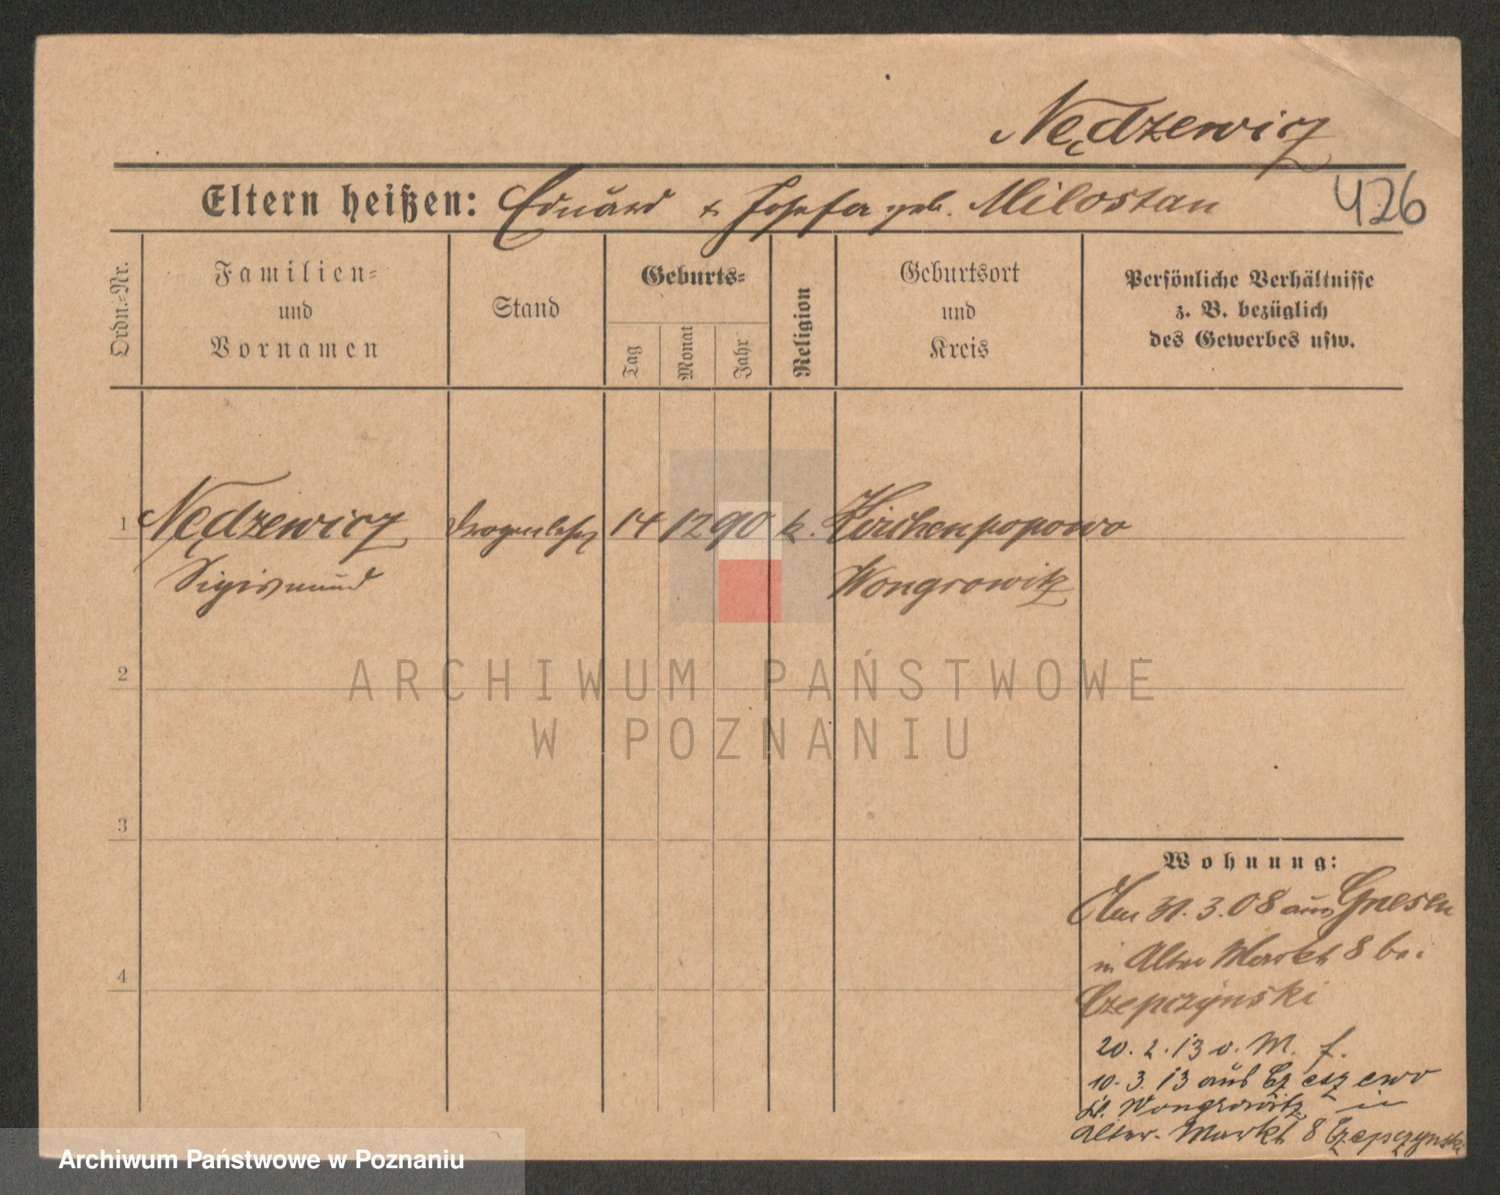 Nędzewicz
Eltern heißen: Eduard & Josefa geb. Milostan
426
Ordn.=Nr.
Familien=
und
Vornamen
Stand
Geburts=
Tag
Monat
Jahr
Religion
Geburtsort
und
Kreis
Persönliche Verhältnisse
z. B. bezüglich
des Gewerbes usw.
1 Nędzewicz 14 12 90 k. Kirchenpopowo
Sigismund Wongrowitz
2
3
4
Wohnung:
Am 31.3.08 aus Gnesen
in Alter Markt 8 bei
Czepczynski
20.2.13 v. M. f.
10.3.13 aus Czeszewo
Kr. Wongrowitz in
Alter-Markt 8 Czepczynski
ARCHIWUM PAŃSTWOWE
W POZNANIU
Archiwum Państwowe w Poznaniu